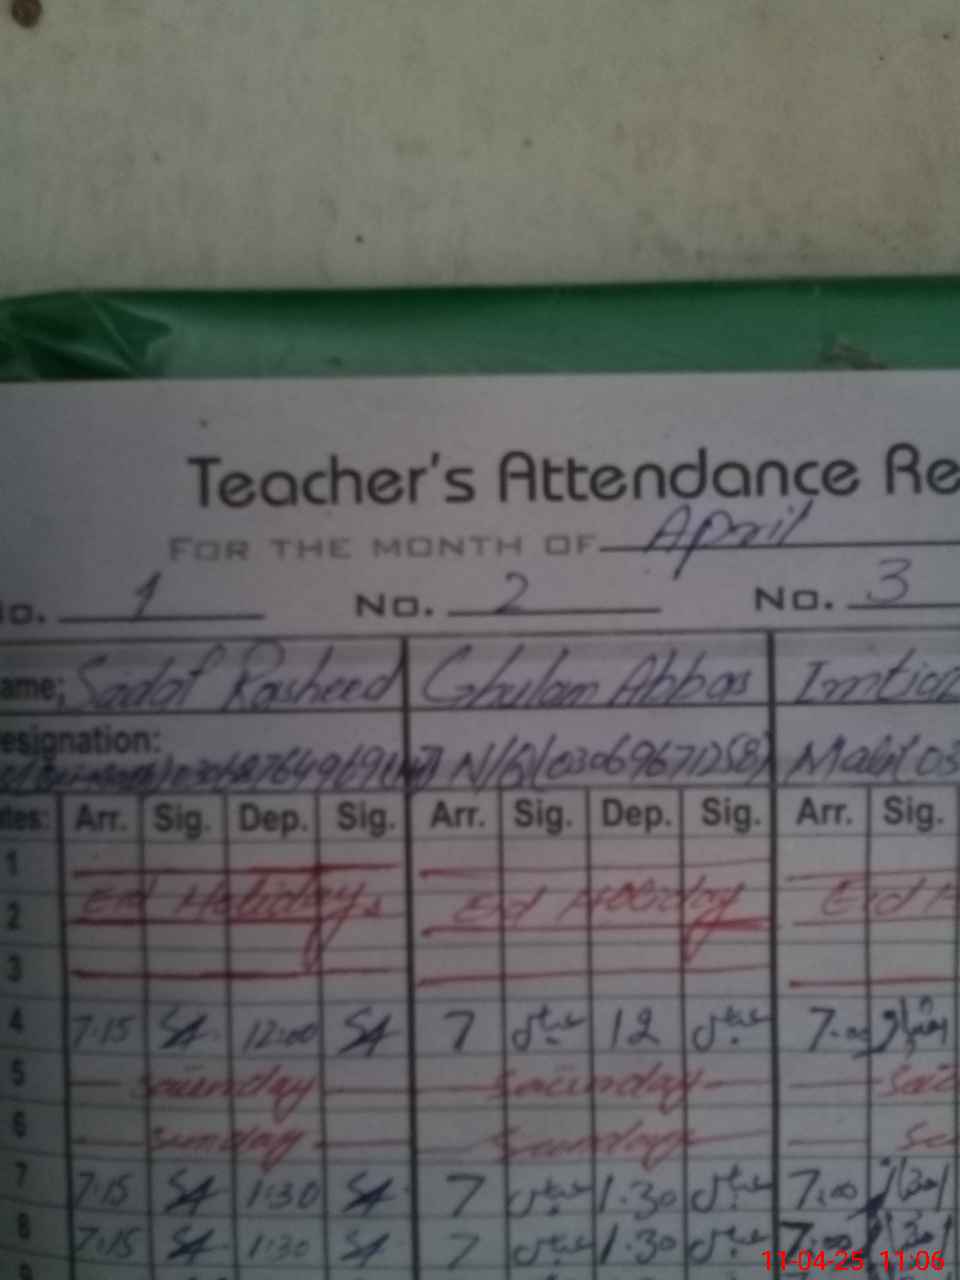 Teacher's Attendance Re
FOR THE MONTH OF April
No. 1 No. 2 No. 3
ame; Sadaf Rasheed Ghulam Abbas Imtiaz
esignation:
N/Q(03069671258) Mali(03
tes: Arr. Sig. Dep. Sig. Arr. Sig. Dep. Sig. Arr. Sig.
1
Eid Holidays Eid Holiday Eid H
2
3
4 7.15 SA 12:00 SA 7 عباس 12 عباس 7.00
5 Saturday Saturday Sat
6 Sunday Sunday Su
7 7.15 SA 1:30 SA 7 عباس 1.30 عباس 7:00
8 7:15 SA 1:30 SA 7 عباس 1.30 عباس 7:00
9
11-04-25 11:06